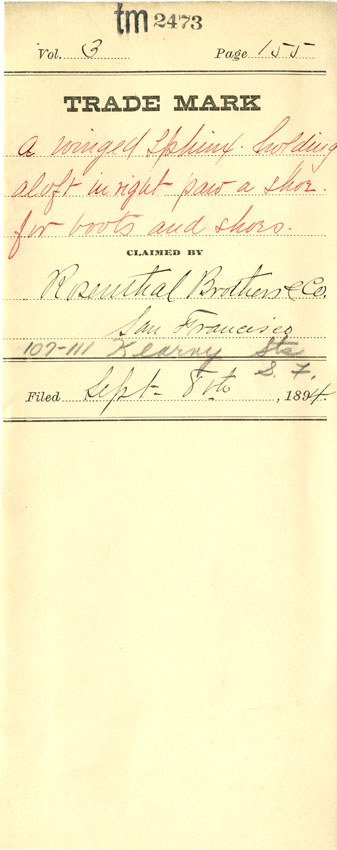 tm 2473
Vol. 3 Page 155
TRADE MARK
A winged Sphinx. holding
aloft in right paw a shoe.
for boots and shoes.
CLAIMED BY
Rosenthal Brothers & Co.
San Francisco
107-111 Kearny Sts
S. F.
Filed Sept- 8th, 1894.